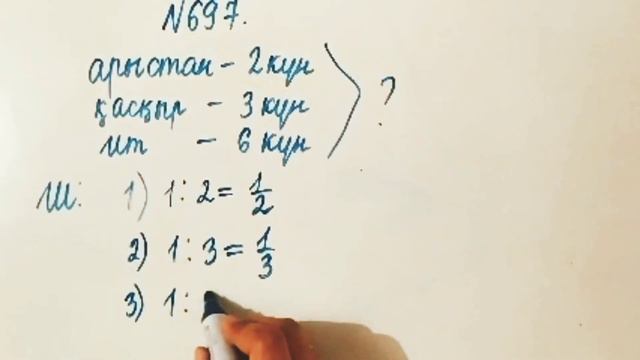 N697.
арыстан - 2 күн
қасқыр - 3 күн
ит - 6 күн
?
Ш: 1) 1 : 2 = 1/2
2) 1 : 3 = 1/3
3) 1 :